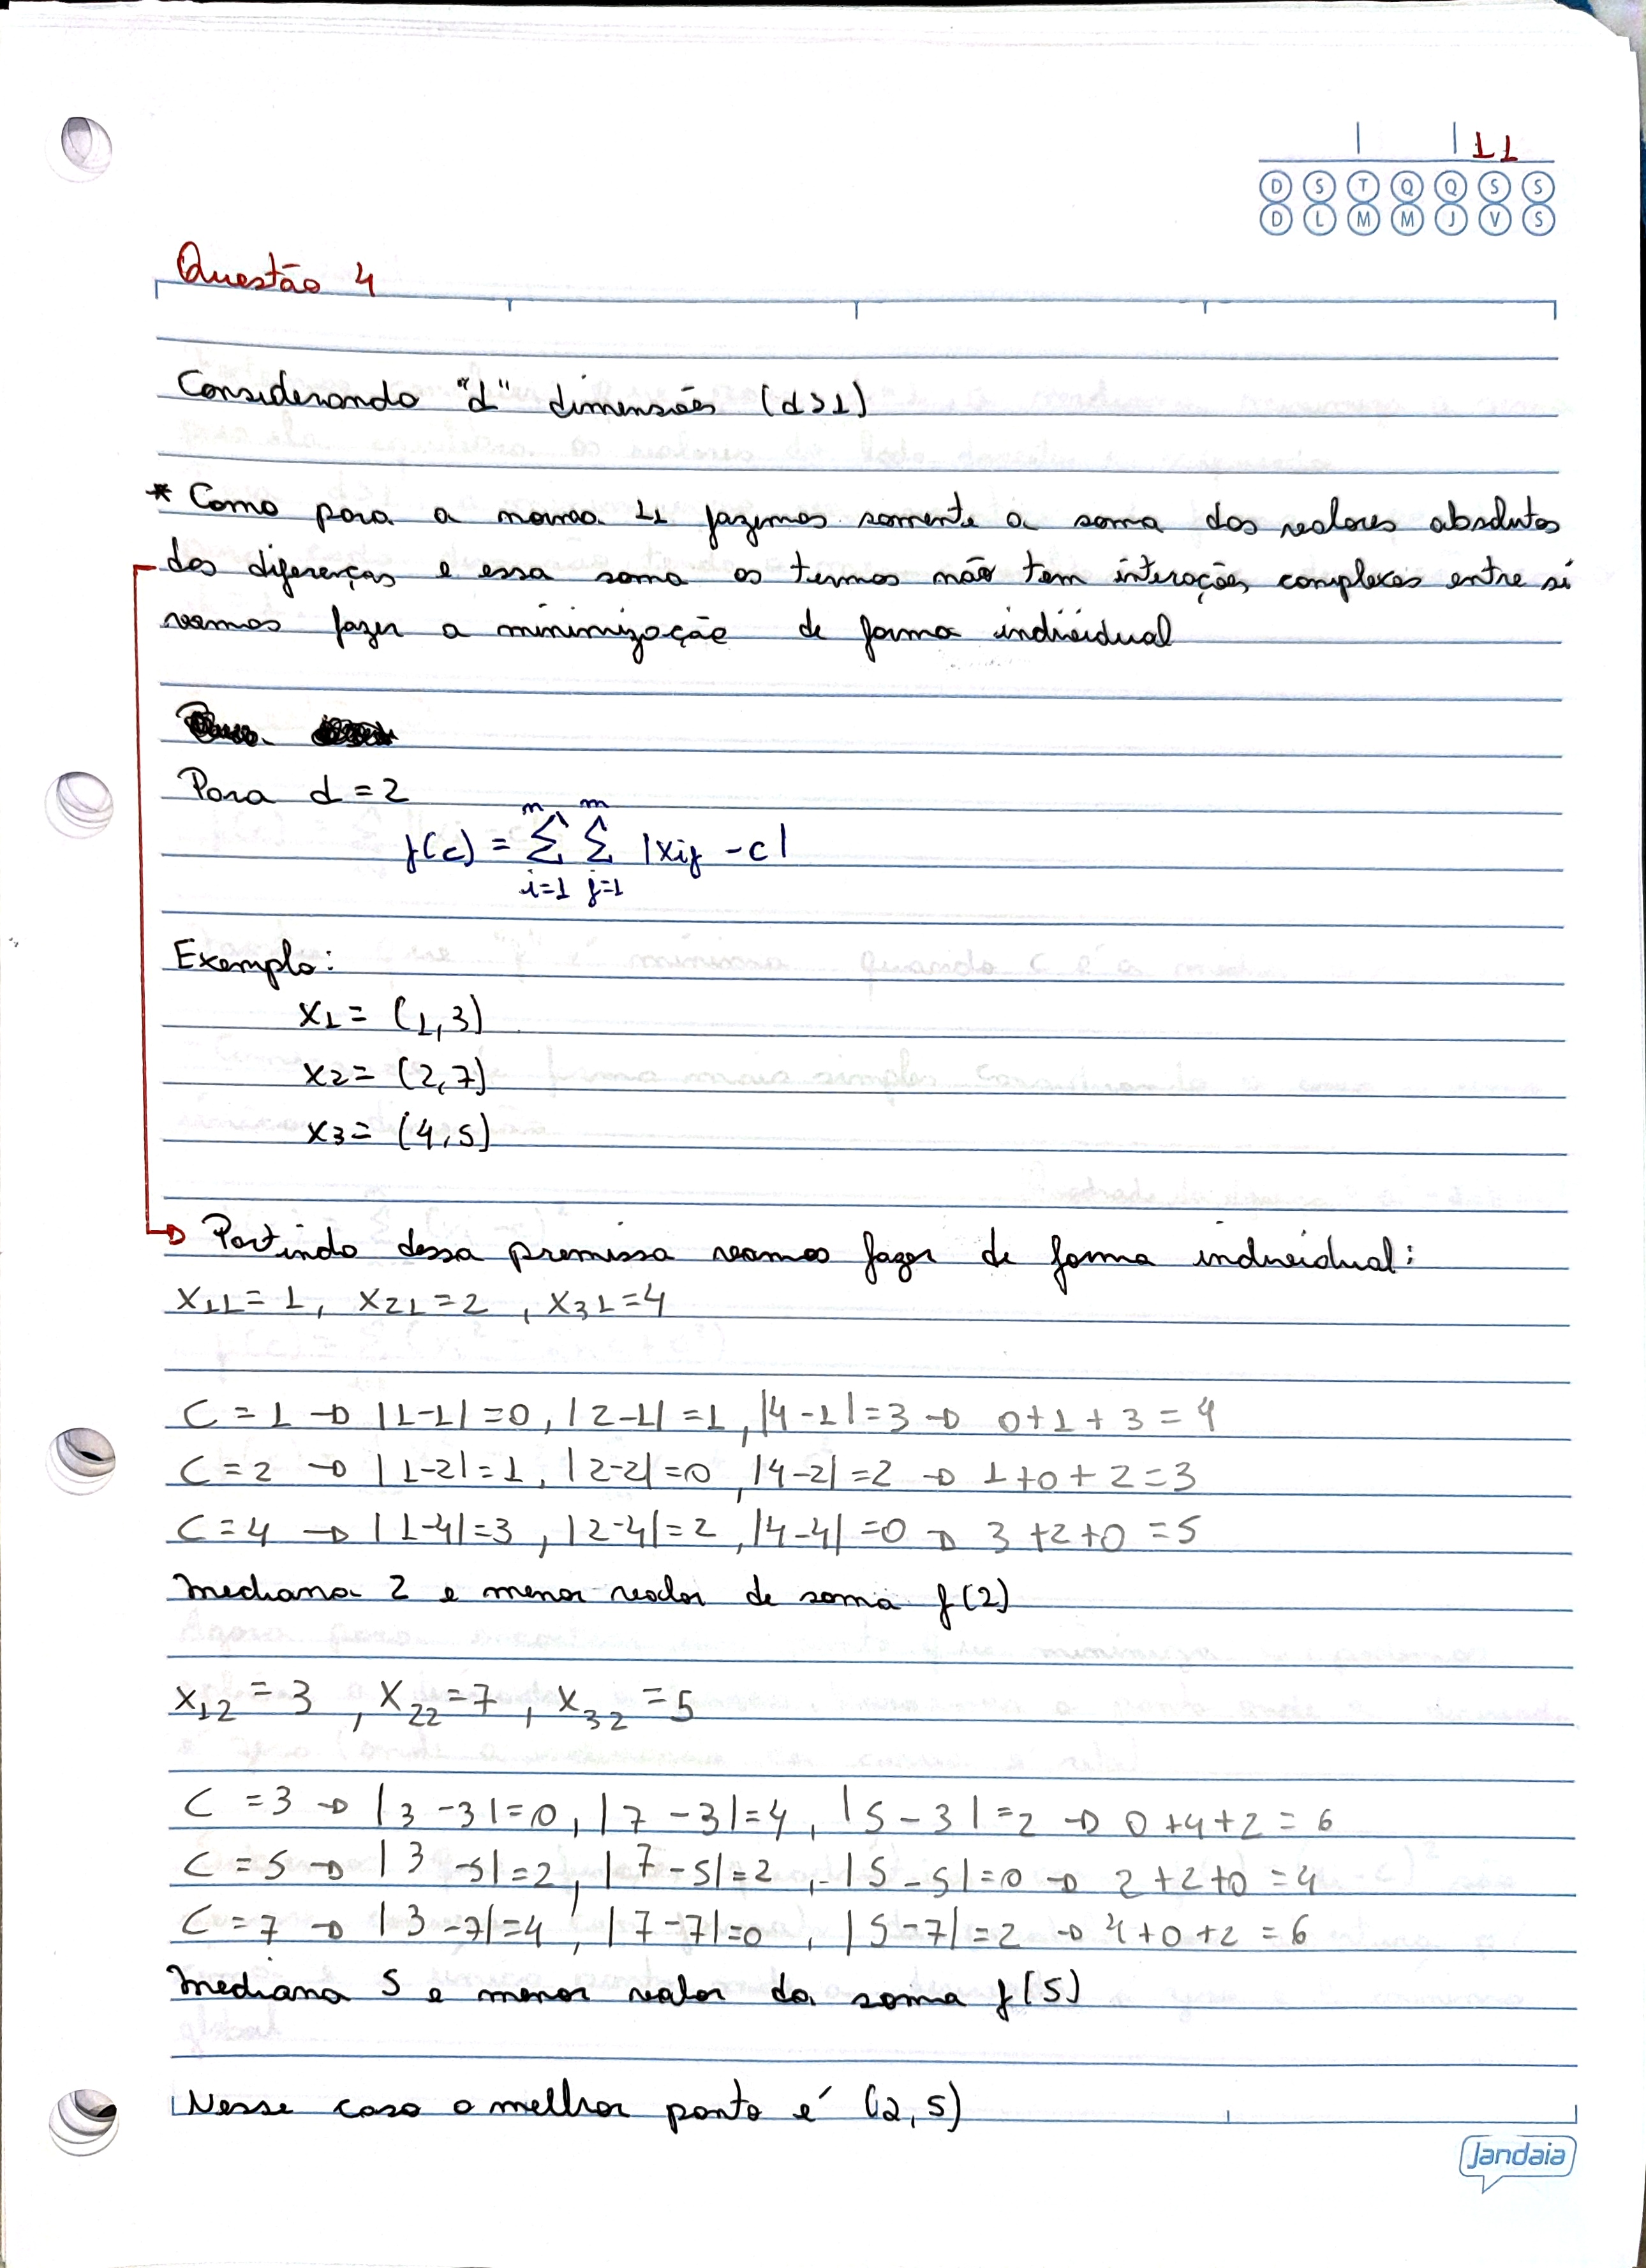 11
D S T Q Q S S
D L M M J V S
Questão 4
Considerando "d" dimensões (d>1)
* Como para a norma L1 fazemos somente a soma dos valores absolutos
das diferenças e essa soma os termos não tem interações complexas entre si
vamos fazer a minimização de forma individual
Para d = 2
f(c) = n∑i=1 m∑j=1 |xij - c|
Exemplo:
x1 = (1,3)
x2 = (2,7)
x3 = (4,5)
→ Partindo dessa premissa vamos fazer de forma individual:
x11 = 1, x21 = 2, x31 = 4
C = 1 → |1-1| = 0, |2-1| = 1, |4-1| = 3 → 0+1+3 = 4
C = 2 → |1-2| = 1, |2-2| = 0, |4-2| = 2 → 1+0+2 = 3
C = 4 → |1-4| = 3, |2-4| = 2, |4-4| = 0 → 3+2+0 = 5
mediana 2 e menor valor de soma f(2)
x12 = 3, x22 = 7, x32 = 5
C = 3 → |3-3| = 0, |7-3| = 4, |5-3| = 2 → 0+4+2 = 6
C = 5 → |3-5| = 2, |7-5| = 2, |5-5| = 0 → 2+2+0 = 4
C = 7 → |3-7| = 4, |7-7| = 0, |5-7| = 2 → 4+0+2 = 6
mediana 5 e menor valor da soma f(5)
Nesse caso o melhor ponto é (2,5)
Jandaia